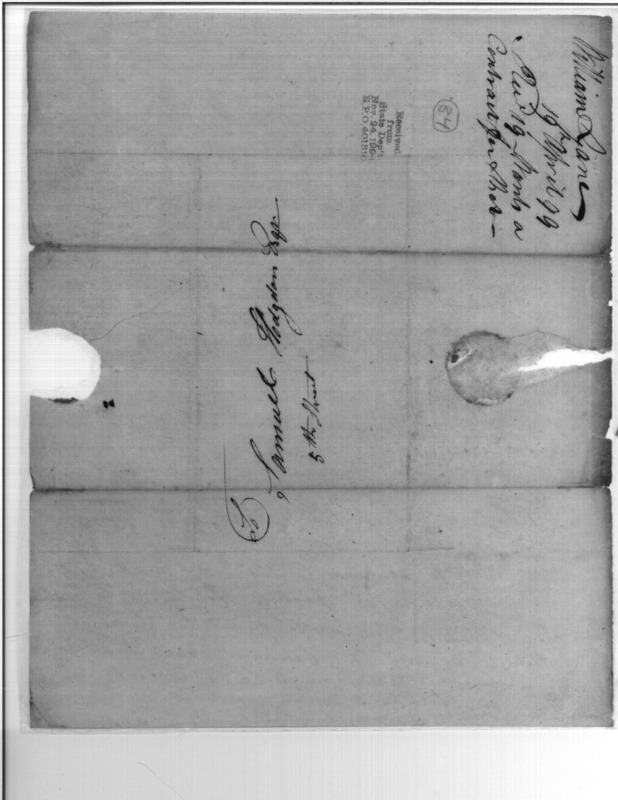 William Lane
19th April 99
Recd 19 Wants a
Contract for Shot —
84
Received
from
State Dep't
Nov. 24 189
R.P.O. 401310
Samuel Hodgdon Esqr.
5th Street